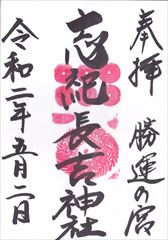 奉拝 勝運の宮
志紀長吉神社
令和二年五月二日